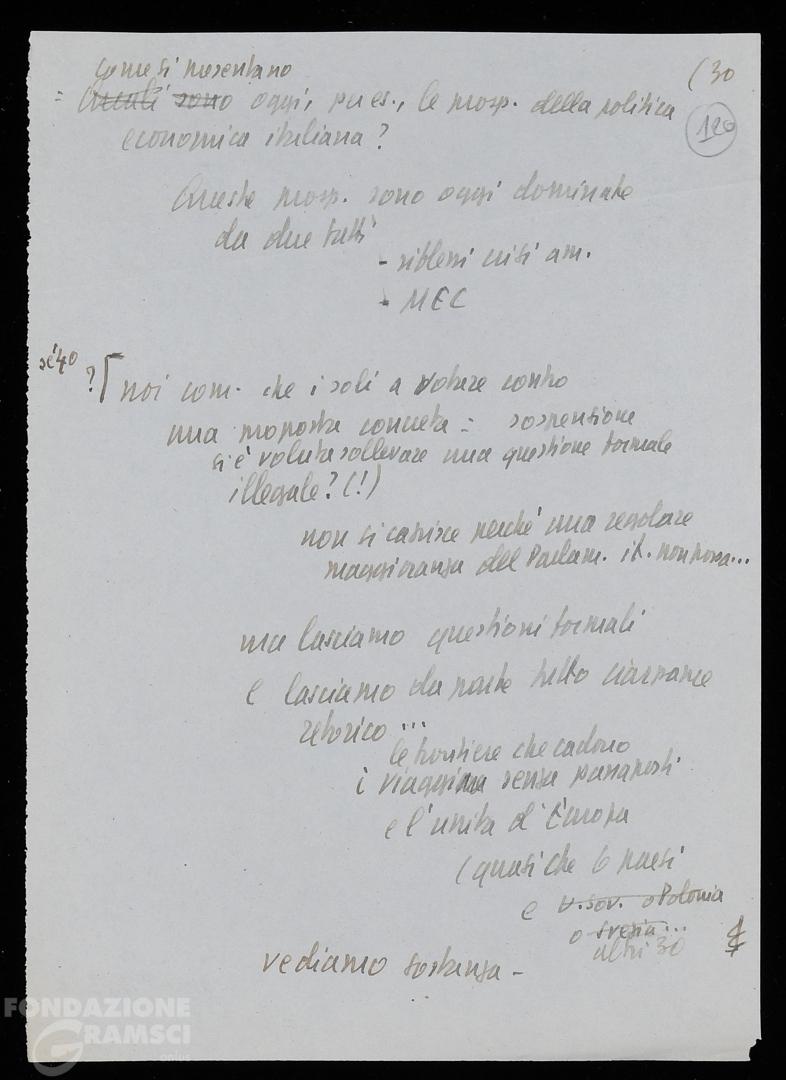 come si presentano
(30
= Quali sono oggi, per es., le prosp. della politica
120
economica italiana?
Queste prosp. sono oggi dominate
da due fatti
- riflessi crisi am.
- MEC
sì 40
?[ noi com. che i soli a votare contro
una proposta concreta = sospensione
si è voluta sollevare una questione formale
illegale? (!)
non si capisce perché una regolare
maggioranza del Parlam. it. non possa...
ma lasciamo questioni formali
e lasciamo da parte tutto ciarpame
retorico ...
le frontiere che cadono
i viaggi senza passaporti
e l'unità d'Europa
(quasi che 6 paesi
e U. sov. o Polonia
o Svezia...
altri 30
vediamo sostanza -
FONDAZIONE
GRAMSCI
onlus